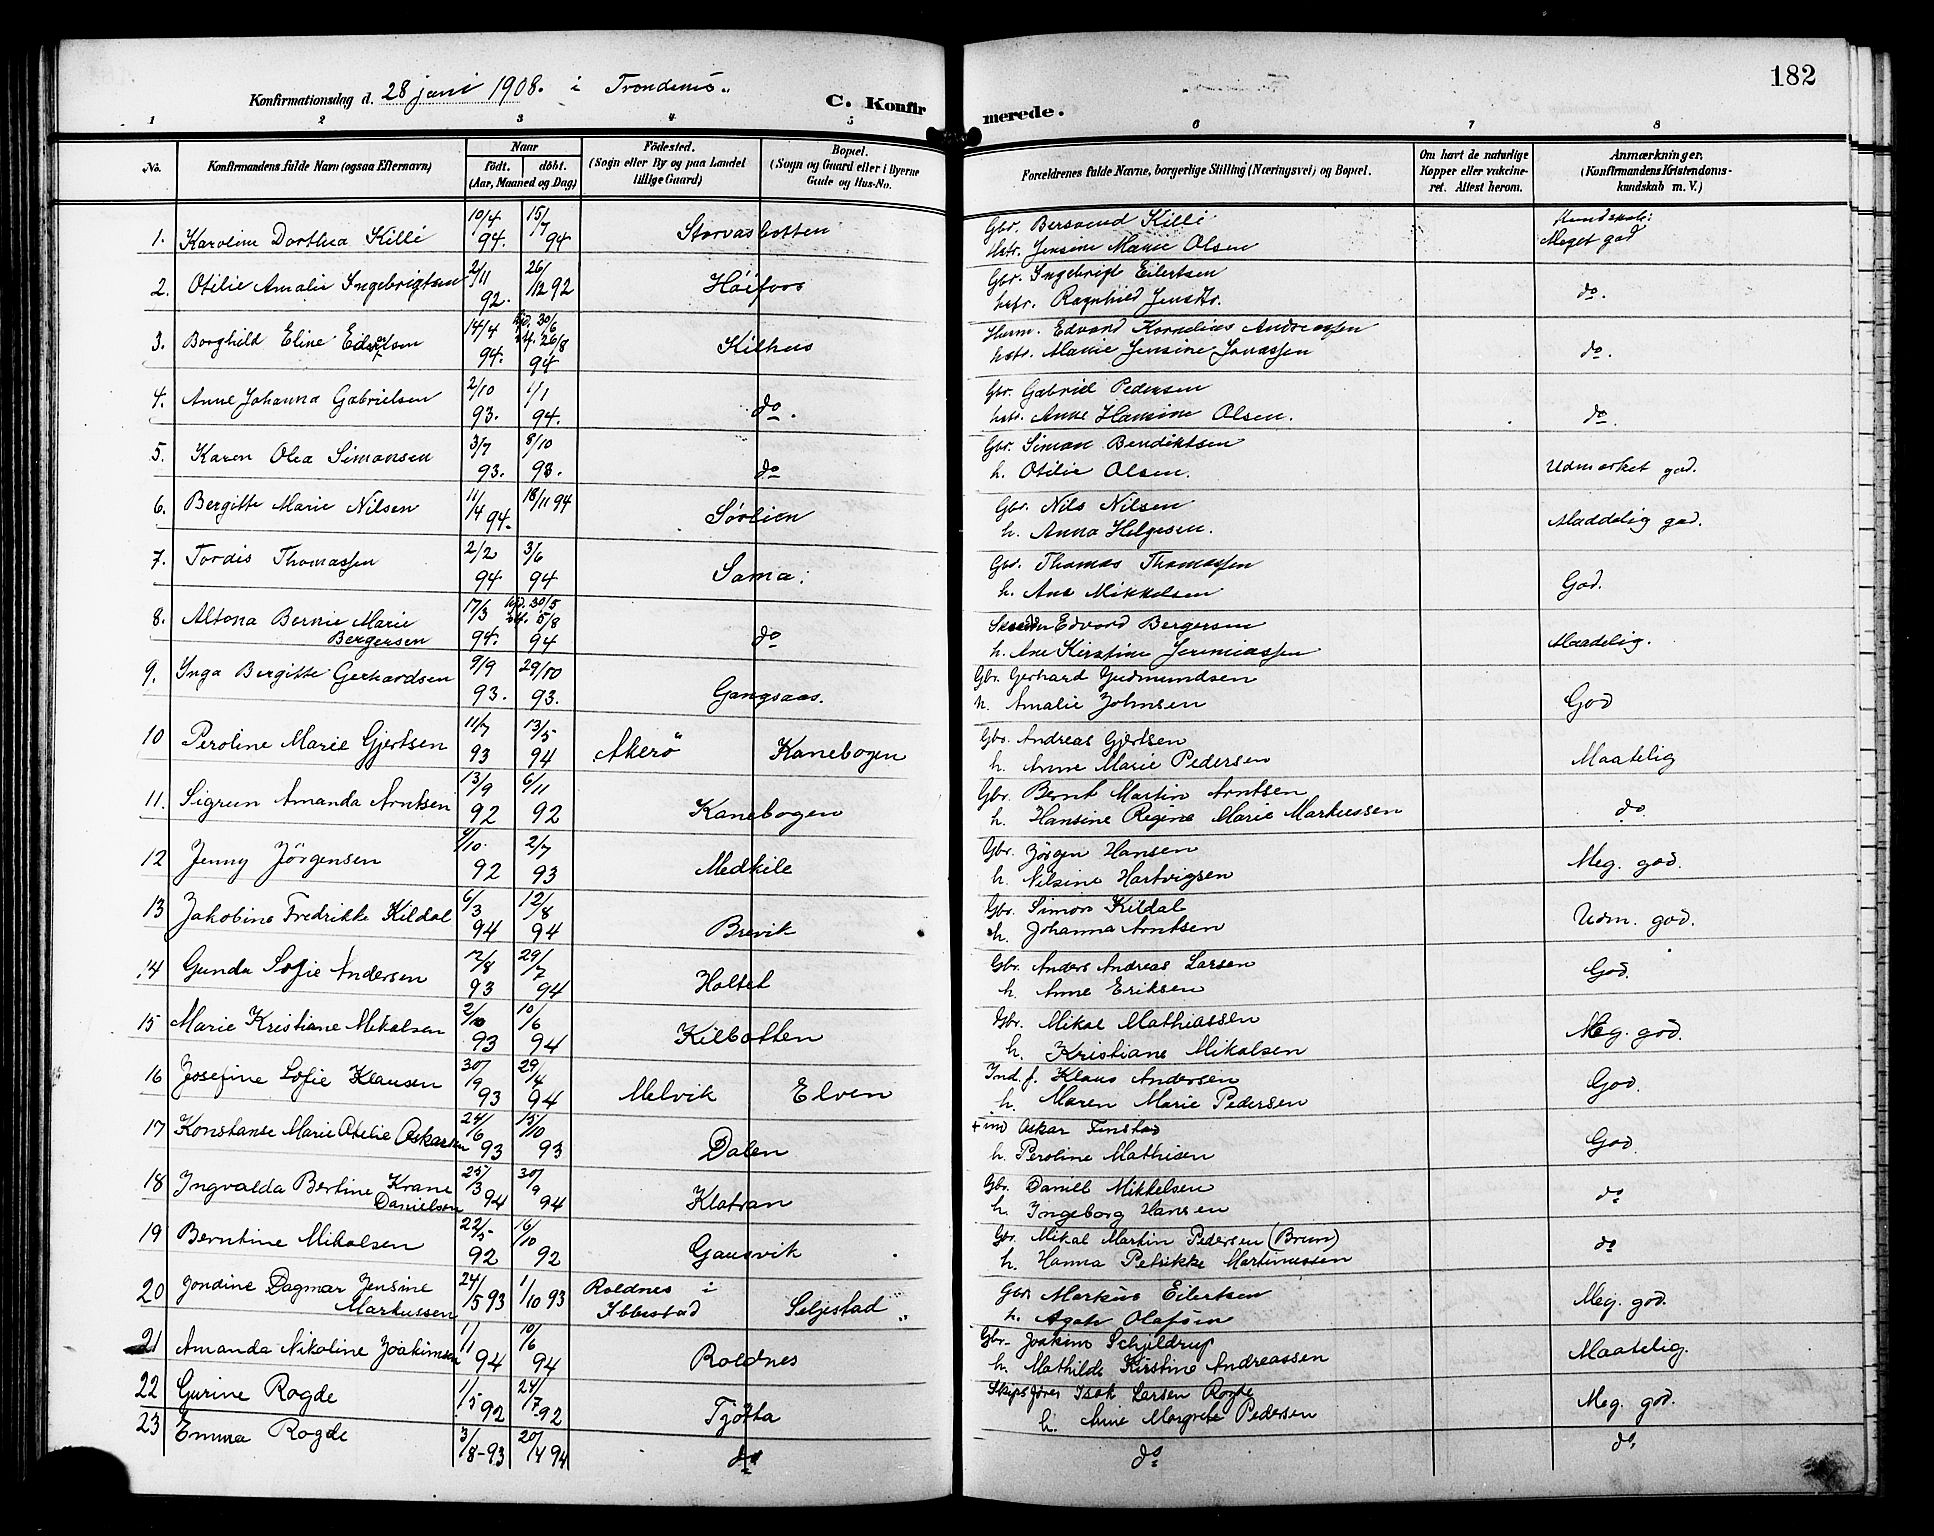 Konfirmationsdag d. 28 juni 1908. i Trondenes.
C. Konfirmerede.
182
1 2 3 4 5 6 7 8
No.
Konfirmandens fulde Navn (ogsaa Efternavn)
Naar
født. døbt.
(Aar, Maaned og Dag)
Fødested.
(Sogn eller By og paa Landet tillige Gaard)
Bopæl.
(Sogn og Gaard eller i Byerne Gade og Hus-No.
Forældrenes fulde Navne, borgerlige Stilling (Næringsvei) og Bopæl.
Om havt de naturlige Kopper eller vaccineret. Attest herom.
Anmærkninger.
(Konfirmandens Kristendomskundskab m. V.)
1. Karoline Dorthea Killi 10/4 94. 15/7 94 Storvasbotten Gbr. Bersvend Killi
Hstr. Jensine Marie Olsen Kundskab: Meget god
2. Otilie Amalie Ingebrigtsen 2/11 92. 26/12 92 Höifoss Gbr. Ingebrigt Eilertsen
hstr. Ragnhild Jensdr. do.
3. Borghild Eline Edvardsen 14/4 94. hjd. 30/6 stf. 26/8 94 Kilhus Husm. Edvard Kornelius Andreassen
hstr. Marie Jensine Jonassen do.
4. Anne Johanna Gabrielsen 2/10 93. 1/1 94. do. Gbr. Gabriel Pedersen
hstr. Anne Hansine Olsen. do.
5. Karen Olea Simonsen 3/7 93. 8/10 93. do Gbr. Simon Bendiktsen
h. Otilie Olsen. Udmerket god.
6. Bergitte Marie Nilsen 11/4 94. 18/11 94 Sørlien Gbr. Nils Nilsen
h. Anna Helgesen. Maadelig god.
7. Tordis Thomassen 2/2 94 3/6 94 Sama: Gbr. Thomas Thomassen
h. Ane Mikkelsen God.
8. Altona Bernie Marie
Bergersen 17/3 94. hjd. 30/5 stf. 5/8 94 do Skrædder Edvard Bergersen
h. Ane Kirstine Jeremiassen Maadelig.
9. Inga Bergitte Gerhardsen 9/9 93. 29/10 93. Gangsaas. Gbr. Gerhard Gudmundsen
h. Amalie Johnsen God
10 Peroline Marie Gjertsen 11/7 93 13/5 94 Akerö Kanebogen Gbr. Andreas Gjertsen
h. Anne Marie Pedersen Maatelig
11. Sigrun Amanda Arntsen 13/9 92 6/11 92 Kanebogen Gbr. Bernt Martin Arntsen
h. Hansine Regine Marie Markussen do.
12 Jenny Jörgensen 9/10 92 2/7 93 Medkile Gbr. Jörgen Hansen
h. Nilsine Hartvigsen Meg. god.
13 Jakobine Fredrikke Kildal 6/3 94 12/8 94 Brevik Gbr. Simon Kildal
h. Johanna Arntsen Udm. god.
14 Gunda Sofie Andersen 12/8 93 29/7 94 Holtet Gbr. Anders Andreas Larsen
h. Anne Eriksen God.
15 Marie Kristiane Mikalsen 2/10 93 10/6 94 Kilbotten Gbr. Mikal Mathiassen
h. Kristiane Mikalsen Meg. god.
16 Josefine Sofie Klausen 30/9 93 29/4 94 Melvik Elven Ind. f. Klaus Andersen
h. Maren Marie Pedersen God.
17 Konstanse Marie Otelie Oskarsen 24/6 93 15/10 93 Dalen + ind Oskar Finstad
h. Peroline Mathisen God
18 Ingvalda Bertine Krane
Danielsen 25/3 94 30/9 94 Klatran Gbr. Daniel Mikkelsen
h. Ingeborg Hansen do
19 Berntine Mikalsen 22/5 92 16/10 92 Gausvik Gbr. Mikal Martin Pedersen (Brun)
h. Hanna Petrikke Martinussen do
20 Jondine Dagmar Jensine
Markussen 24/5 93 1/10 93 Roldnes i
Ibbestad Seljestad Gbr Markus Eilertsen
h. Agate Olafsen Meg. god.
21 Amanda Nikoline Joakimsen 1/1 94 10/6 94 Roldnes Gbr. Joakim Schjeldrup
h. Mathilde Kirstine Andreassen Maatelig.
22 Gurine Rogde 1/5 92 24/7 92 Tjötta Skipsfører Isak Larsen Rogde
h. Anne Margrete Pedersen Meg. god.
23 Emma Rogde 3/8 - 93 20/4 94 do do do.